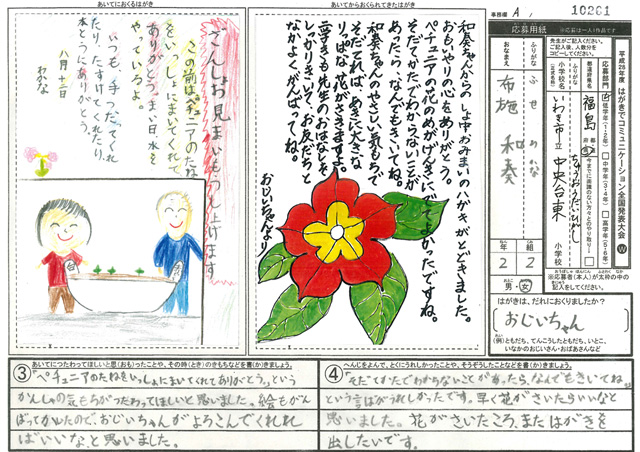 あいてにおくるはがき
ざんしょお見まいもうし上げます
この前はペチュニアのたね
をいっしょにまいてくれて
ありがとう。まい日水を
やっているよ。
いつも、手つだってくれ
たり、たすけてくれたり、
本とうにありがとう。
八月十二日
わかな
あいてからおくられてきたはがき
和奏ちゃんからの しょ中おみまいのハガキがとどきました。
おもいやりの心をありがとう。
ペチュニアの花のめがげんきにでてよかったですね。
そだてかたでわからないことが
あったら、なんでもきいてね。
和奏ちゃんのやさしい気もちで
そだてれば、あきに大きな
りっぱな花がさきますよ。
二学きも先生のおはなしを
しっかりきいて、お友だちと
なかよくがんばってね。
おじいちゃんより
事務欄 A
10201
応募用紙
※応募は一人1作品です
平成25年度 はがきでコミュニケーション全国発表大会 W
応募部門
低学年(1・2年)
中学年(3・4年)
高学年(5・6年)
都道府県名
福島
小学校名
(正式名称)
いわき市立
ちゅうおうだいひがし
中央台東
小学校
ふりがな
ふせ
わかな
おなまえ
布施 和奏
ねん
2
くみ
組
2
男・女
※応募者(本人)が太枠の中の
記入をしてください。
はがきは、だれにおくりましたか?
おじいちゃん
(例)ともだち、てんこうしたともだち、いとこ、
いなかのおじいさん・おばあさんなど
③
あいてにつたわってほしいと思(おも)ったことや、その時(とき)のきもちなどを書(か)きましょう。
「ペチュニアのたねをいっしょにまいてくれてありがとう。」という
かんしゃの気もちがつたわってほしいと思いました。絵もがん
ばってかいたので、おじいちゃんがよろこんでくれれ
ばいいな、と思いました。
④
へんじをよんで、とくにうれしかったことや、そうぞうしたことなどを書(か)きましょう。
「そだてかたでわからないことがあったら、なんでもきいてね。」
という言ばがうれしかったです。早く花がさいたらいいなと
思いました。花がさいたころ、またはがきを
出したいです。